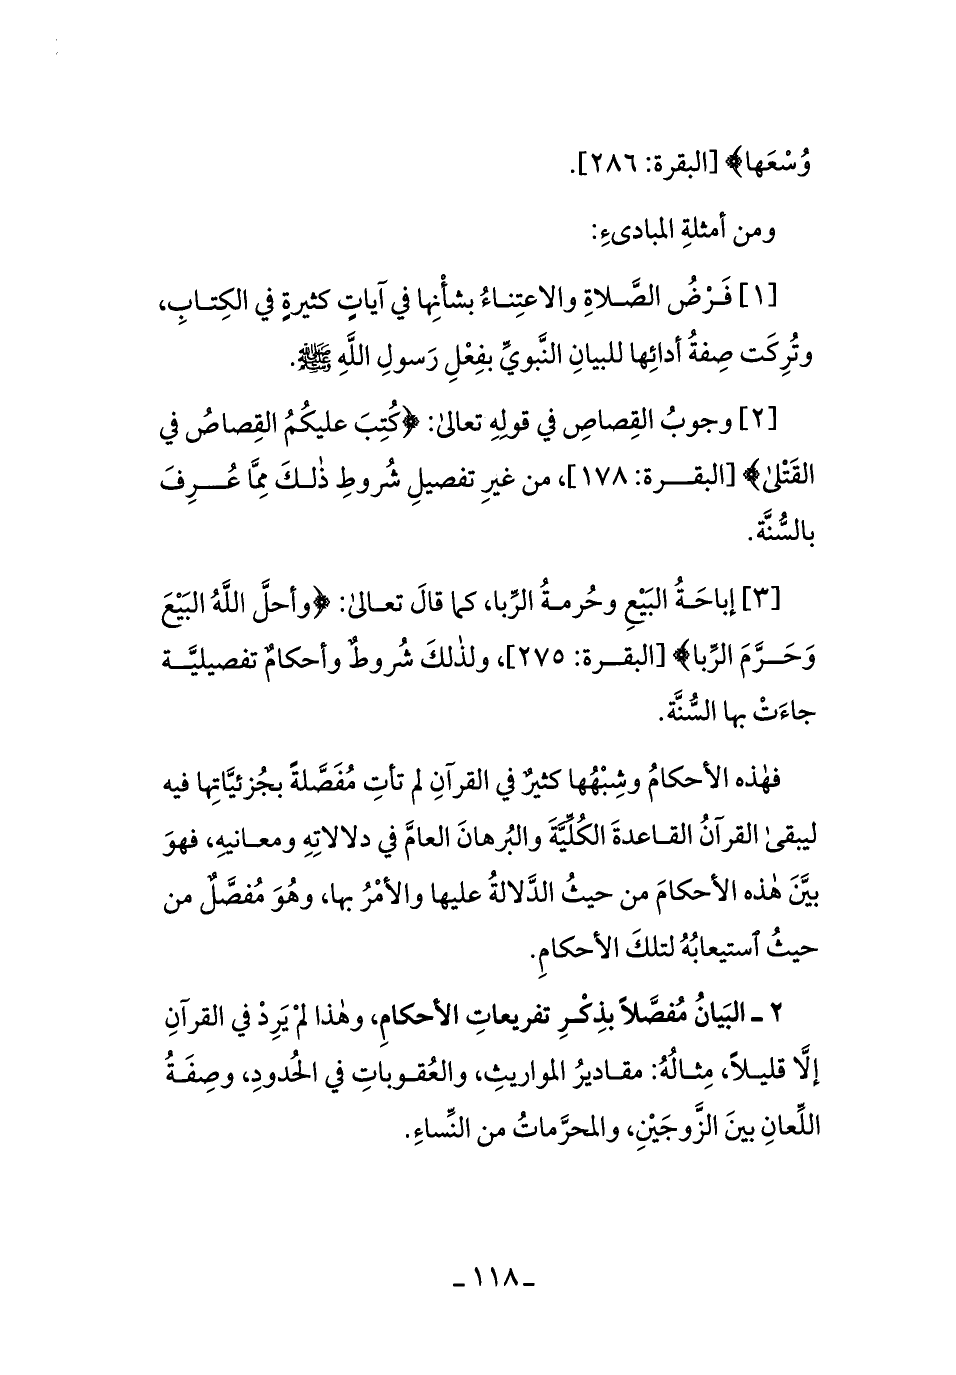 وُسْعَها﴾ [البقرة: ٢٨٦].
ومن أمثلةِ المبادىءِ:
[١] فَرْضُ الصَّلاةِ والاعتِناءُ بشأْنِها في آياتٍ كثيرةٍ في الكِتابِ،
وتُرِكَت صِفةُ أدائِها للبيانِ النَّبويِّ بفِعْلِ رَسولِ اللَّهِ ﷺ.
[٢] وجوبُ القِصاصِ في قولِهِ تعالىٰ: ﴿كُتِبَ عليكُمُ القِصاصُ في
القَتْلىٰ﴾ [البقرة: ١٧٨]، من غيرِ تفصيلِ شُروطِ ذٰلكَ مِمَّا عُرِفَ
بالسُّنَّة.
[٣] إباحَةُ البَيْعِ وحُرمةُ الرِّبا، كما قالَ تعالىٰ: ﴿وأحلَّ اللَّهُ البَيْعَ
وَحَرَّمَ الرِّبا﴾ [البقرة: ٢٧٥]، ولذٰلكَ شُروطٌ وأحكامٌ تفصيليَّة
جاءَتْ بها السُّنَّة.
فهٰذه الأحكامُ وشِبْهُها كثيرٌ في القرآنِ لم تأتِ مُفَصَّلةً بجُزئيَّاتِها فيه
ليبقىٰ القرآنُ القاعدةَ الكُلِّيَّةَ والبُرهانَ العامَّ في دلالاتِهِ ومعانيهِ، فهوَ
بيَّنَ هٰذه الأحكامَ من حيثُ الدَّلالةُ عليها والأمْرُ بها، وهُوَ مُفصَّلٌ من
حيثُ ٱستيعابُهُ لتلكَ الأحكامِ.
٢ ـ البَيانُ مُفصَّلاً بذِكْرِ تفريعاتِ الأحكامِ، وهٰذا لمْ يَرِدْ في القرآنِ
إلَّا قليلاً، مِثالُهُ: مقاديرُ المواريثِ، والعُقوباتِ في الحُدودِ، وصِفَةُ
اللِّعانِ بينَ الزَّوجَيْنِ، والمحرَّماتُ من النِّساءِ.
ـ ١١٨ ـ